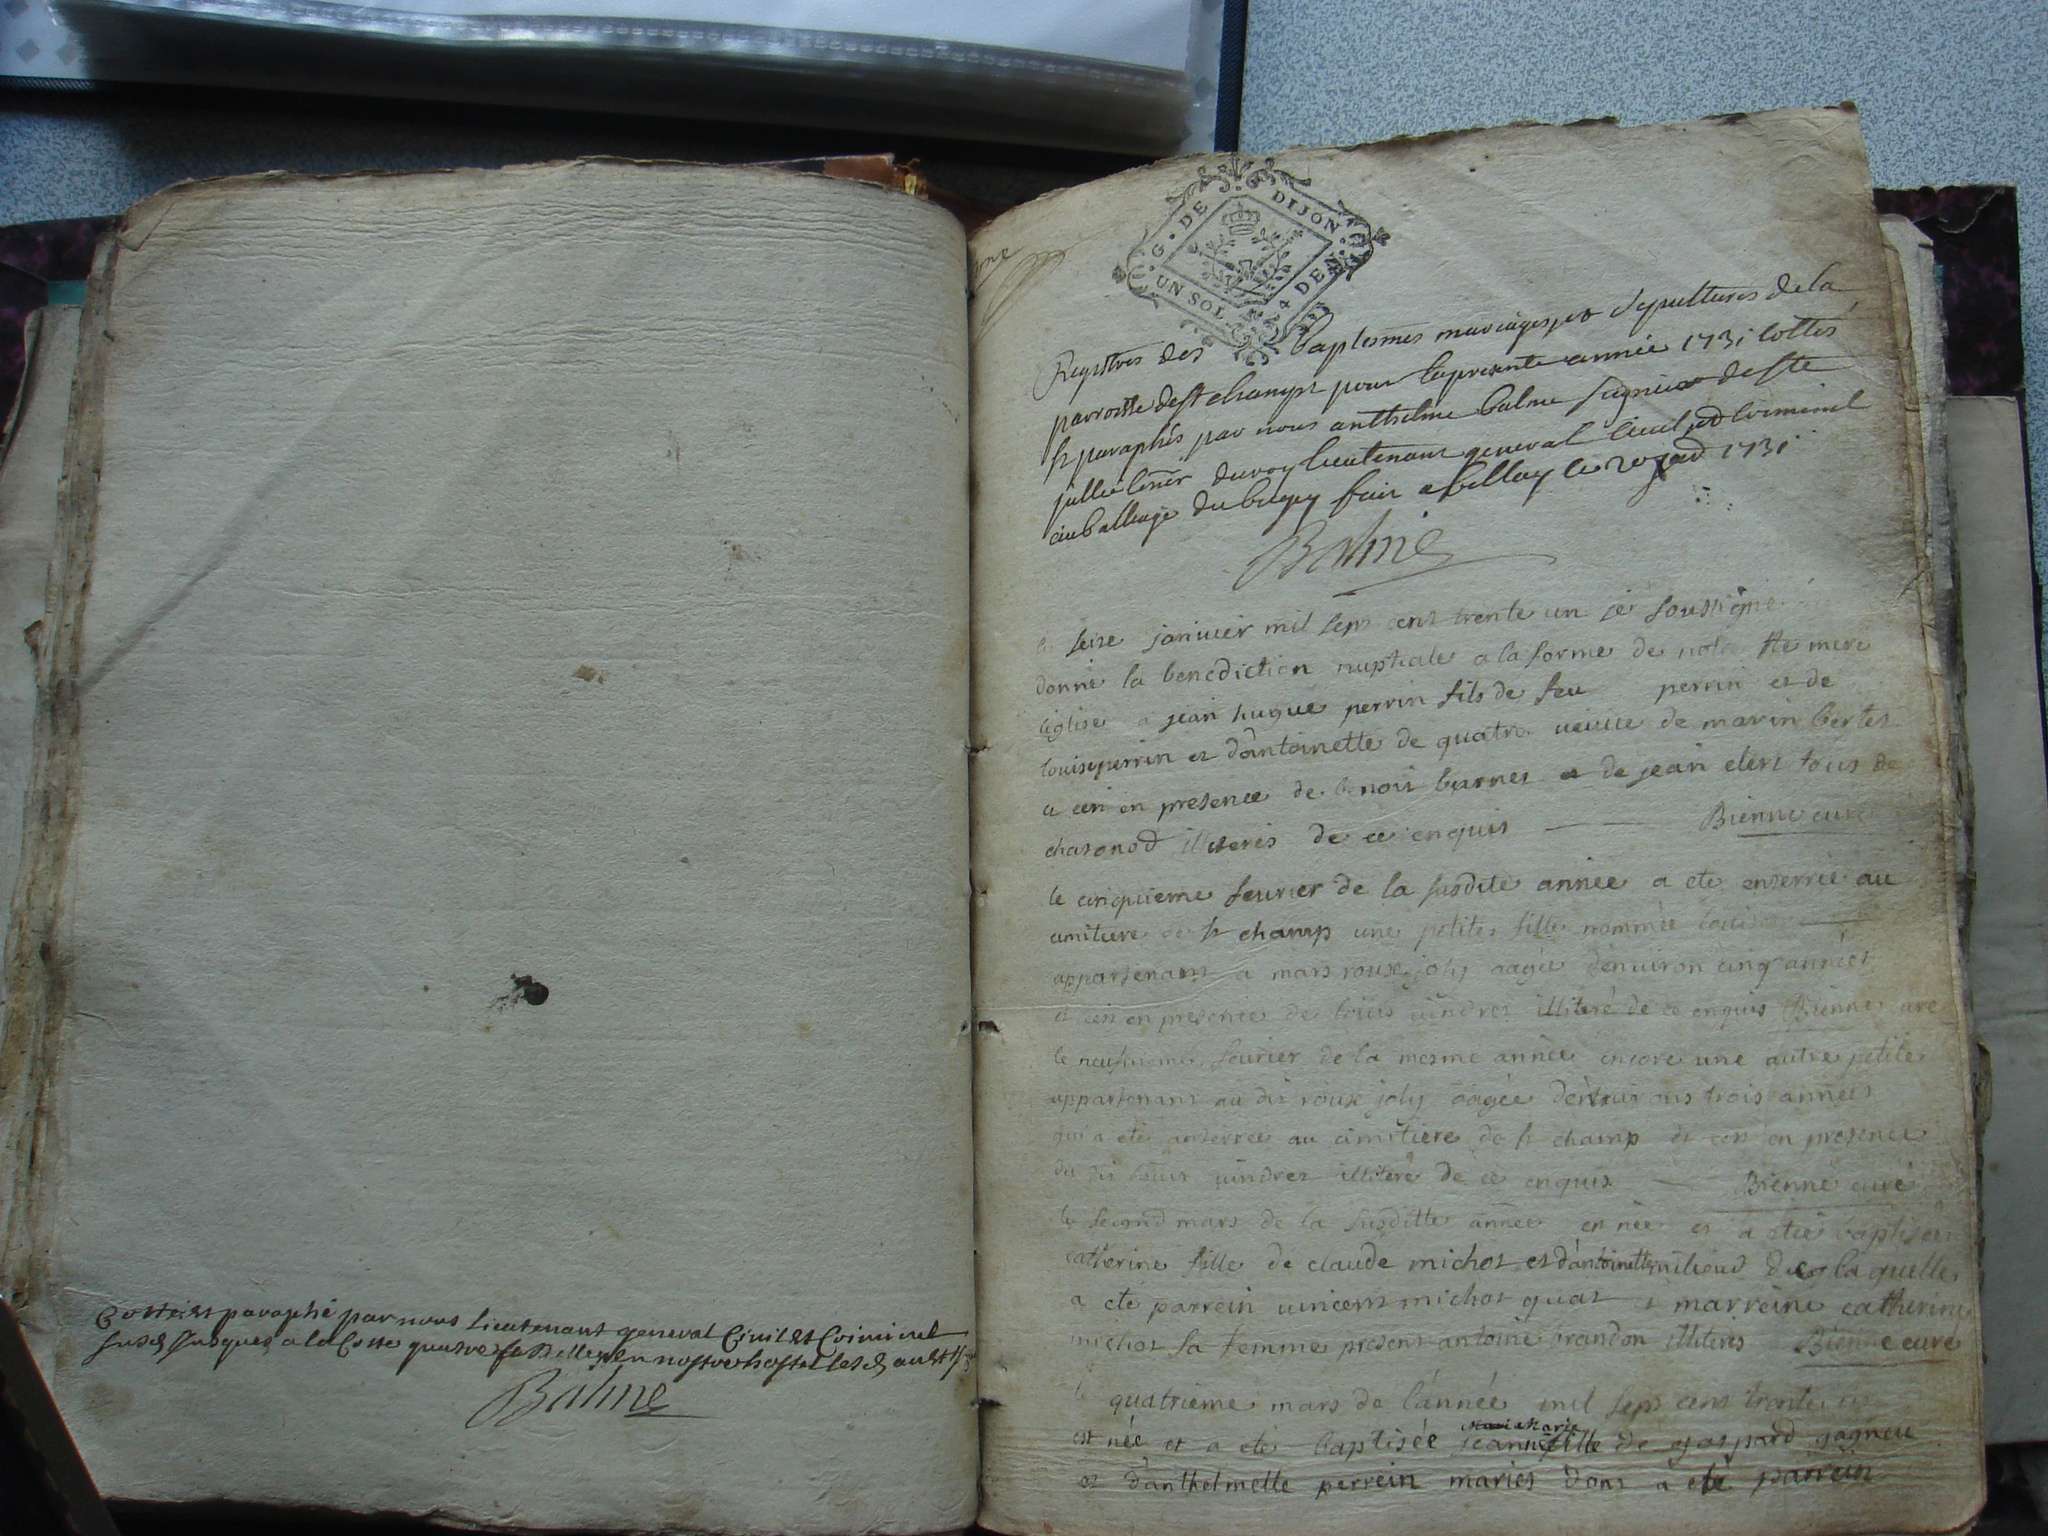 Cotté et paraphé par nous Lieutenant general Civil et Criminel
Jusques a la Cotte quatre en nostre hostel
Balme
G. DE DIJON
UN SOL 4 DEN
Registres des baptesmes mariages et sepultures de la
parroisse de st champt pour la presente année 1731 cottés
& paraphés par nous anthelme balme seigneur de ste
jullie Conser du roy lieutenant general Civil et Criminel
au balliage du bugey fait a bellay le 20 1731
Balme
le seise janvier mil sept cent trente un je soussigné
donné la benediction nuptiale a la forme de notre ste mere
l'eglise a jean hugue perrin fils de feu perrin et de
louise perrin et d'antoinette de quatre veuve de marin bertet
a ceci en presence de benoit burnet et de jean clert tous de
chasonod illiterés de ce enquis Bienne curé
le cinquieme fevrier de la susdite année a eté enterrée au
cimitiere de st champ une petite fille nommée louise
appartenant a roux joly aagée d'environ cinq années
et ceci en presence de louis vindret illiteré de ce enquis Bienne curé
le neufvieme fevrier de la mesme année encore une autre petite
appartenant au dit roux joly aagée d'environs trois années
qui a eté anterrée au cimitiere de st champ et ceci en presence
du dit louis vindret illiteré de ce enquis Bienne curé
le second mars de la susditte année est née et a etée baptisée
catherine fille de claude michot et d'antoinette de laquelle
a eté parrein vincent michot et marreine catherine
michot sa femme present antoine brandon illiterés Bienne curé
le quatrieme mars de l'année mil sept cent trente un
marie
est née et a eté baptisée jeanne fille de gaspard gagneu
et d'anthelmette perrein mariés dont a eté parrein